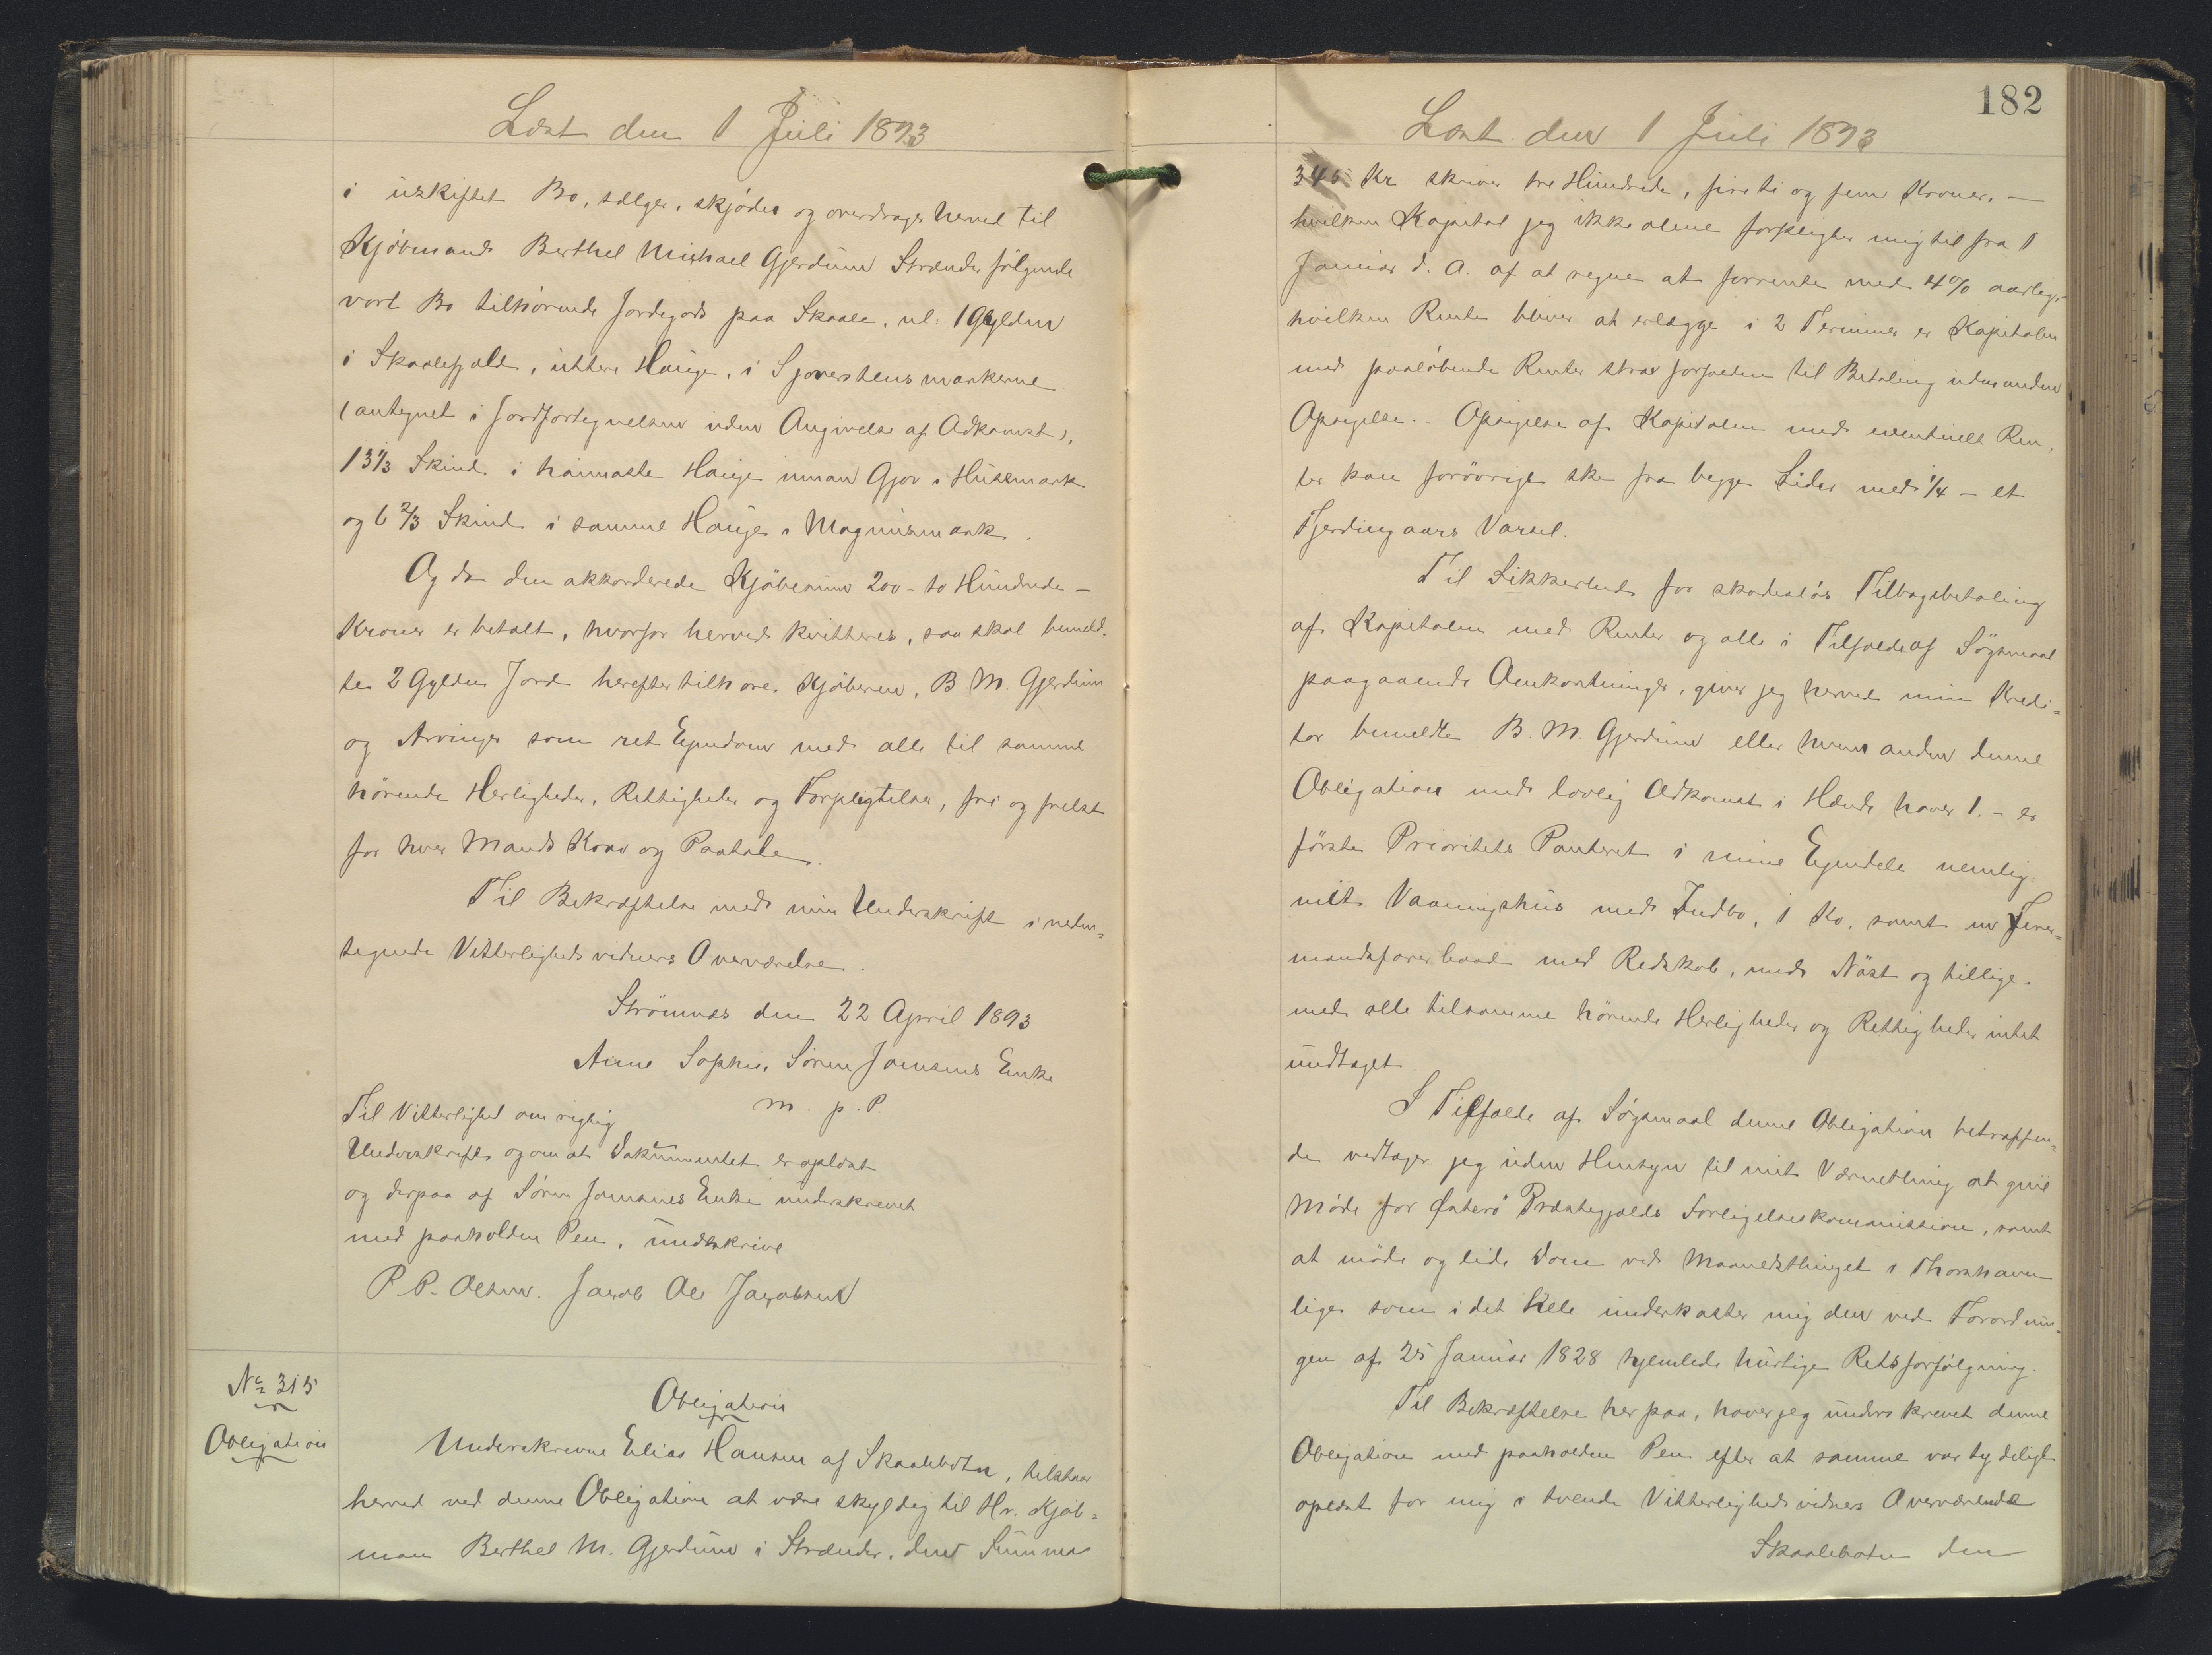 Læst den 1 Juli 1893
i uskiftet Bo, sælger, skjøder og overdrager herved til
Kjøbmand Berthel Michael Gjerdum Strænder følgende
vort Bo tilhørende Jordegods paa Skaale, nl: 1 Gylden
i Skaalefjald, uttere Hauge, i Sjoverstens markerne
(antegnet i Jordfortegnelsen uden Angivelse af Adkomst),
13 1/3 Skind i hammaste Hauge innan Gjov i Husemark
og 6 2/3 Skind i samme Hauge i Magnusmark.
Og da den akkorderede Kjøbesum 200 - to Hundrede -
Kroner er betalt, hvorfor herved kvitteres, saa skal bemeld-
te 2 Gylden Jord herefter tilhøre Kjøberen, B M. Gjerdum
og Arvinger som ret Ejendom med alle til samme
hørende Herligheder, Rettigheder og Forpligtelser, fri og frelst
for hver Mands Krav og Paatale.
Til Bekræftelse med min Underskrift i neden=
tegnede Vitterligheds vidners Overværelse.
Strømnæs den 22 April 1893
Anne Sophie, Søren Joensens Enke
m. p. P.
Til Vitterlighed om rigtig
Underskrift og om at Dokumentet er oplæst
og derpaa af Søren Joensens Enke underskrevet
med paaholden Pen, underskrive
P. P. Olsen. Jacob Ole Jacobsen
No 315
Obligation
Obligation
Underskrevne Elias Hansen af Skaalebotn, tilstaar
herved ved denne Obligation at være skyldig til Hr. Kjøb=
man Berthel M. Gjerdum i Strænder, den Summa
182
Læst den 1 Juli 1893
345 Kr skriver tre Hundrede, firti og fem Kroner, -
hvilken Kapital jeg ikke alene forpligter mig til fra 1
Januar d. A. af at regne at forrente med 4% aarlig,
hvilken Rente bliver at erlægge i 2 Terminer er Kapitalen
med paaløbende Renter strax forfalden til Betaling uden anden
Opsigelse. Opsigelse af Kapitalen med eventuelt Ren,
ter kan forøvrigt ske fra begge Sider med 1/4 - et
Fjerdingaars Varsel.
Til Sikkerhed for skadesløs Tilbagebetaling
af Kapitalen med Renter og alle i Tilfælde af Søgsmaal
paagaaende Omkostninger, giver jeg herved min Kredi=
tor bemeldte B. M. Gjerdum eller hvem anden denne
Obligation med lovlig Adkomst i Hænde haver 1. - er
første Prioritets Panteret i mine Ejendele nemlig
mit Vaaningshus med Indbo, 1 Ko, samt en Firer=
mandsfarer baad med Redskab, med Nøst og tillige.
med alle tilsamme hørende Herligheder og Rettigheder intet
undtaget.
I Tilfælde af Søgsmaal denne Obligation betræffen=
de vedtager jeg uden Hensyn til mit Værnething at give
Møde for Østerø Præstegjælds Forligelseskommission, samt
at møde og lide Dom ved Maanedsthinget i Thorshavn
lige som i det Hele underkaster mig den ved Forordnin=
gen af 25 Januar 1828 hjemlede hurtige Retsforfølgning.
Til Bekræftelse her paa, haver jeg underskrevet denne
Obligation med paaholden Pen efter at samme var tydeligt
oplæst for mig i tvende Vitterligheds vidners Overværende
Skaalebotn den